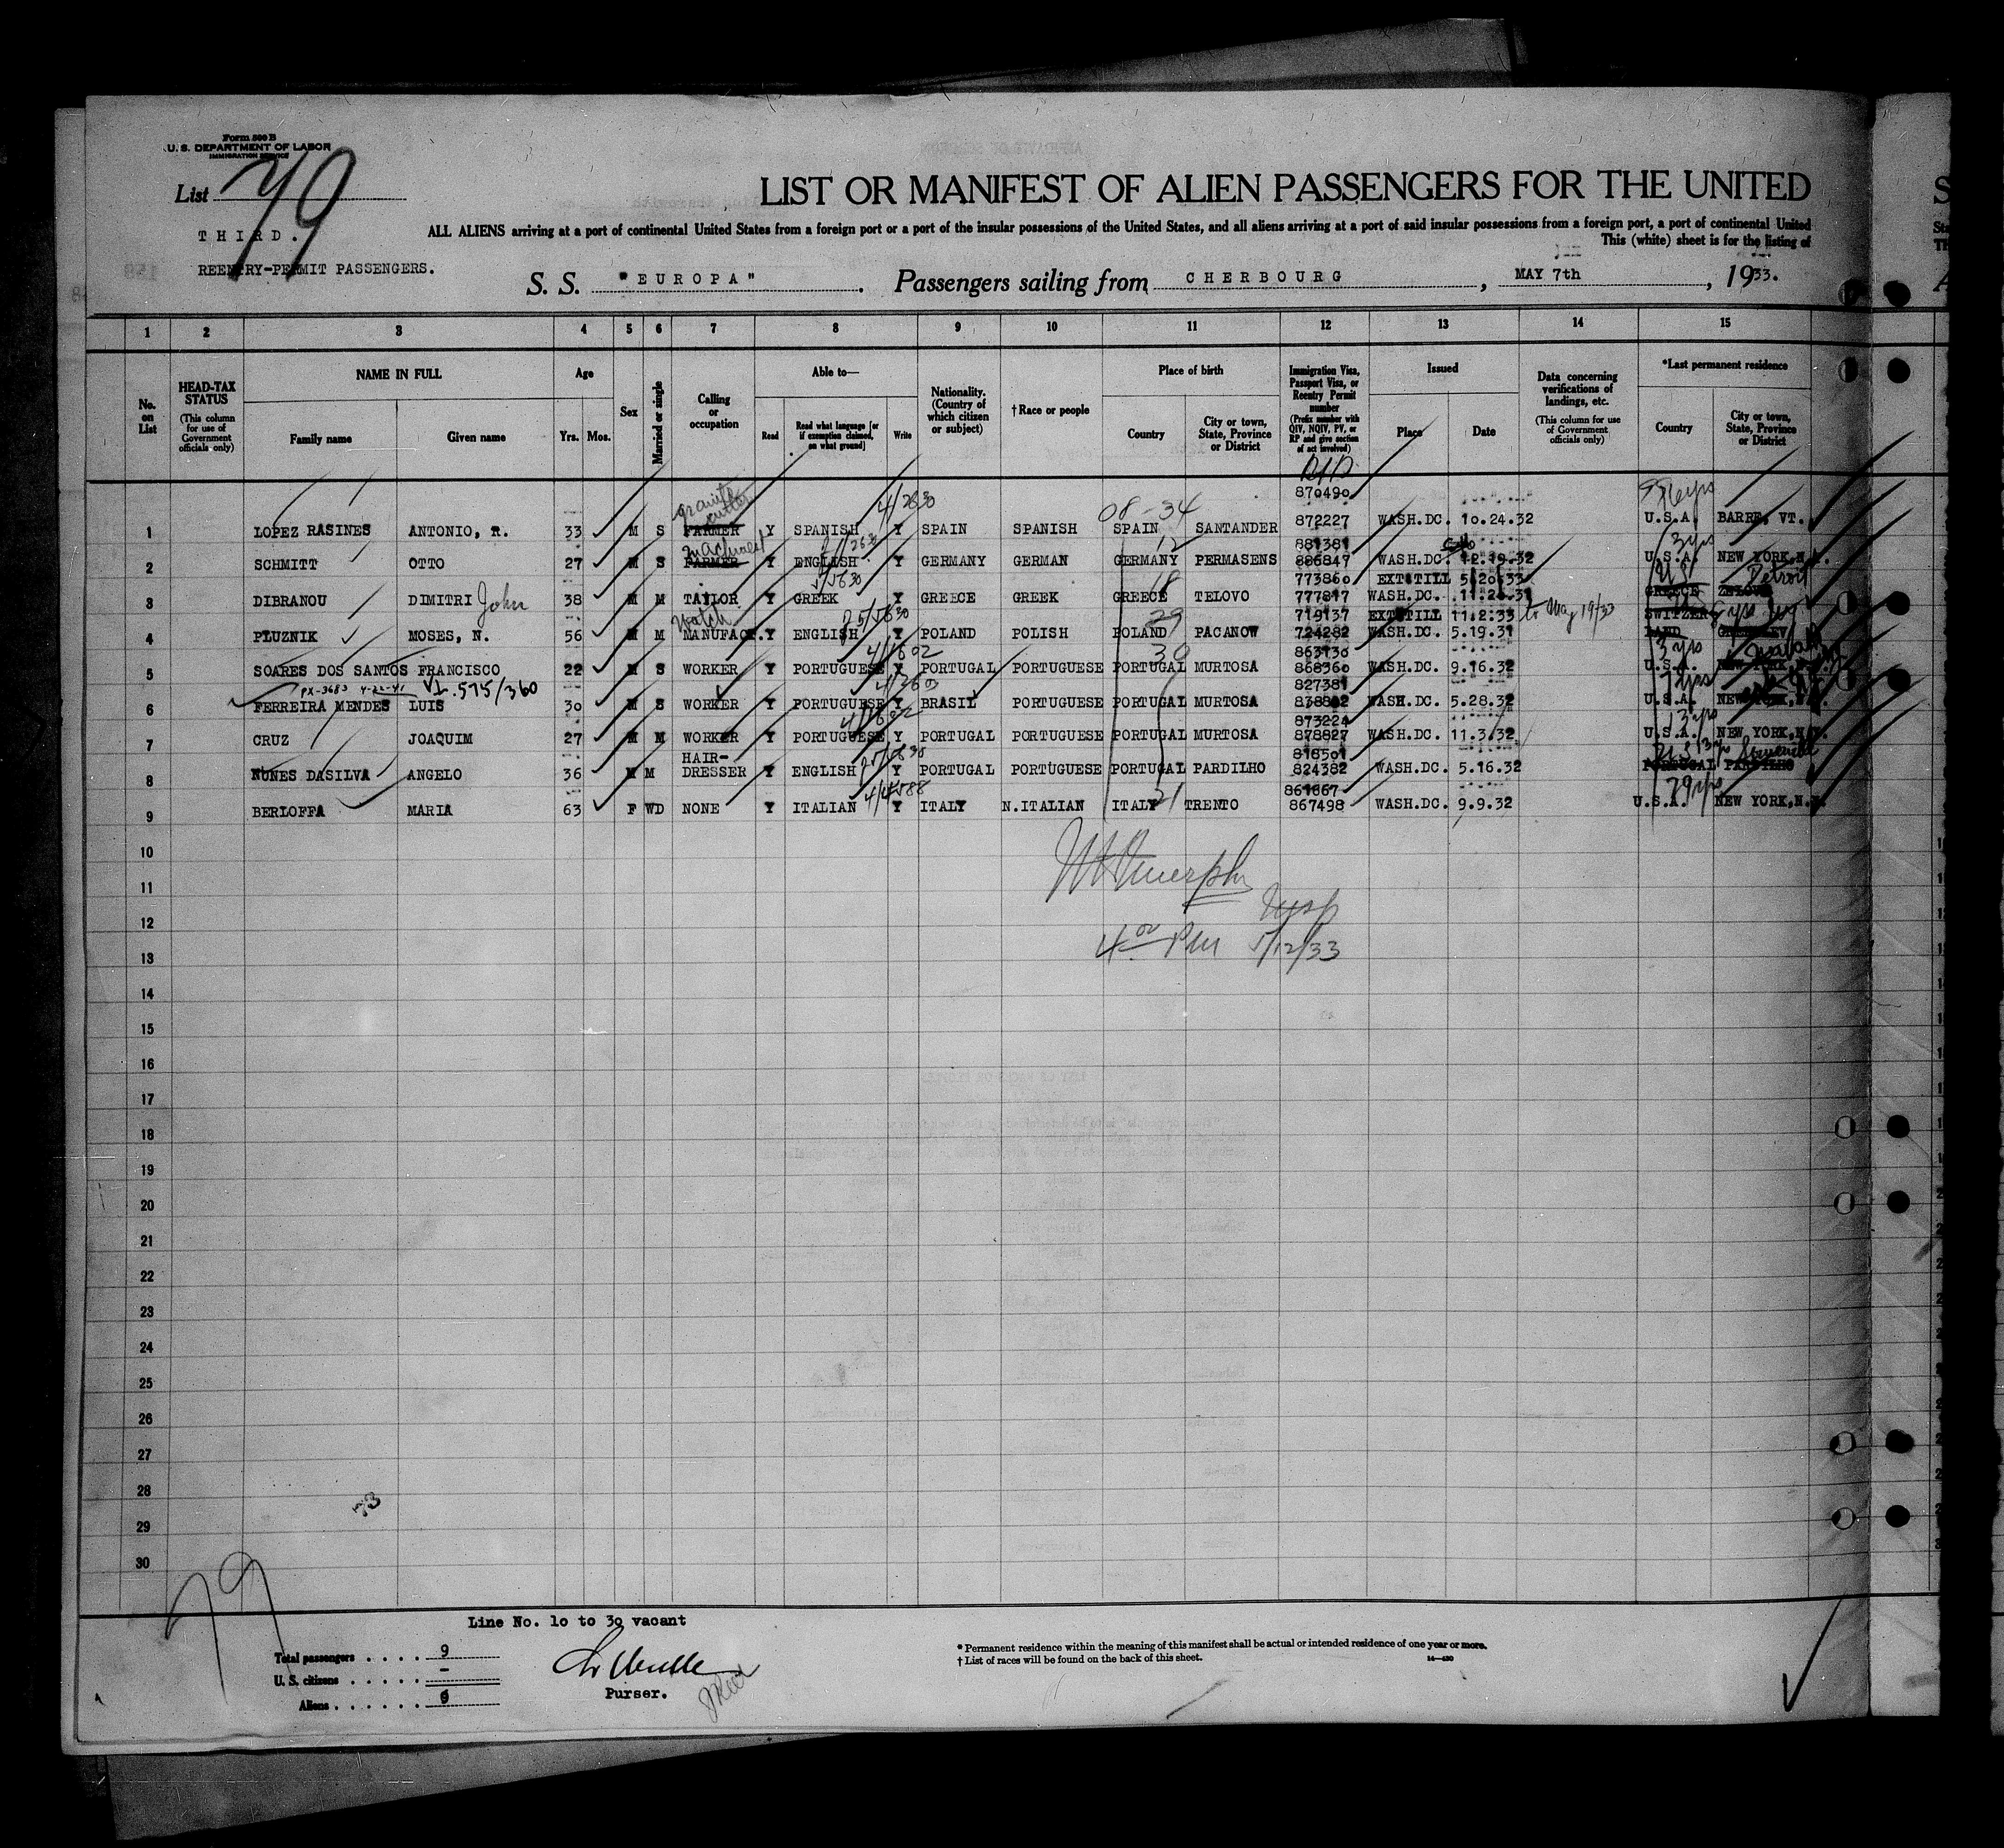 Form 500 B
U. S. DEPARTMENT OF LABOR
IMMIGRATION SERVICE
List 79
THIRD.
REENTRY-PERMIT PASSENGERS.
LIST OR MANIFEST OF ALIEN PASSENGERS FOR THE UNITED
ALL ALIENS arriving at a port of continental United States from a foreign port or a port of the insular possessions of the United States, and all aliens arriving at a port of said insular possessions from a foreign port, a port of continental United
This (white) sheet is for the listing of
S. S. "EUROPA" Passengers sailing from CHERBOURG, MAY 7th, 1933.
1 2 3 4 5 6 7 8 9 10 11 12 13 14 15
No. on List
HEAD-TAX STATUS (This column for use of Government officials only)
NAME IN FULL
Family name Given name
Age
Yrs. Mos.
Sex
Married or single
Calling or occupation
Able to—
Read Read what language [or if exemption claimed, on what ground] Write
Nationality. (Country of which citizen or subject)
† Race or people
Place of birth
Country City or town, State, Province or District
Immigration Visa, Passport Visa, or Reentry Permit number (Prefix number with QIV, NQIV, PV, or RP and give section of act involved)
Issued
Place Date
Data concerning verifications of landings, etc. (This column for use of Government officials only)
*Last permanent residence
Country City or town, State, Province or District
granite cutter 08-34 870490
1 LOPEZ RASINES ANTONIO, R. 33 M S FARMER Y SPANISH Y SPAIN SPANISH SPAIN SANTANDER 872227 WASH.DC. 10.24.32 U.S.A. BARRE, VT.
machinist 12 881381 3 yrs
2 SCHMITT OTTO 27 M S FARMER Y ENGLISH Y GERMANY GERMAN GERMANY PERMASENS 886847 WASH.DC. 12.19.32 U.S.A. NEW YORK,N.Y.
18 773860 EXT.TILL 5.20.33 US Detroit
3 DIBRANOU DIMITRI John 38 M M TAYLOR Y GREEK Y GREECE GREEK GREECE TELOVO 777817 WASH.DC. 11.20.31 GREECE
watch 29 719137 EXT.TILL 11.2.33 to May 19/33 SWITZER
4 PLUZNIK MOSES, N. 56 M M MANUFACT. Y ENGLISH Y POLAND POLISH POLAND PACANOW 724282 WASH.DC. 5.19.31 LAND
30 863130 3 yrs
5 SOARES DOS SANTOS FRANCISCO 22 M S WORKER Y PORTUGUESE Y PORTUGAL PORTUGUESE PORTUGAL MURTOSA 868360 WASH.DC. 9.16.32 U.S.A. NEW YORK,N.Y.
PX-3683 4-22-41 575/360 827381
6 FERREIRA MENDES LUIS 30 M S WORKER Y PORTUGUESE Y BRASIL PORTUGUESE PORTUGAL MURTOSA WASH.DC. 5.28.32 U.S.A. NEW YORK,N.Y.
873224 13 yrs
7 CRUZ JOAQUIM 27 M M WORKER Y PORTUGUESE Y PORTUGAL PORTUGUESE PORTUGAL MURTOSA 878827 WASH.DC. 11.3.32 U.S.A. NEW YORK,N.Y.
HAIR- 818501
8 NUNES DASILVA ANGELO 36 M M DRESSER Y ENGLISH Y PORTUGAL PORTUGUESE PORTUGAL PARDILHO 824382 WASH.DC. 5.16.32 PORTUGAL PARDILHO
21 861667 29 yrs
9 BERLOFFA MARIA 63 F WD NONE Y ITALIAN Y ITALY N.ITALIAN ITALY TRENTO 867498 WASH.DC. 9.9.32 U.S.A. NEW YORK,N.Y.
10
11
12
Insp
4 00 PM 5/12/33
13
14
15
16
17
18
19
20
21
22
23
24
25
26
27
28
73
29
30
79
Line No. 10 to 30 vacant
Total passengers . . . . 9
U. S. citizens . . . . . –
Aliens . . . . . . 9
Purser.
* Permanent residence within the meaning of this manifest shall be actual or intended residence of one year or more.
† List of races will be found on the back of this sheet.